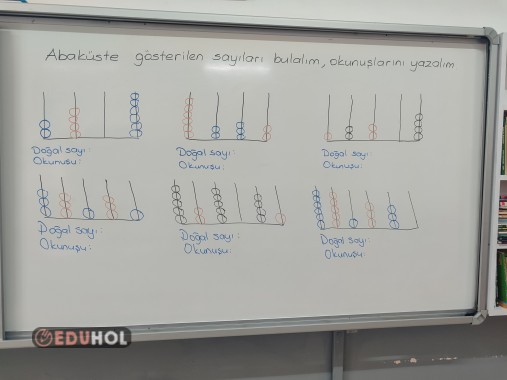 Abaküste gösterilen sayıları bulalım, okunuşlarını yazalım
Doğal sayı:
Okunuşu:
Doğal sayı:
Okunuşu:
Doğal sayı:
Okunuşu:
Doğal sayı:
Okunuşu:
Doğal sayı:
Okunuşu:
Doğal sayı
Okunuşu:
EDUHOL